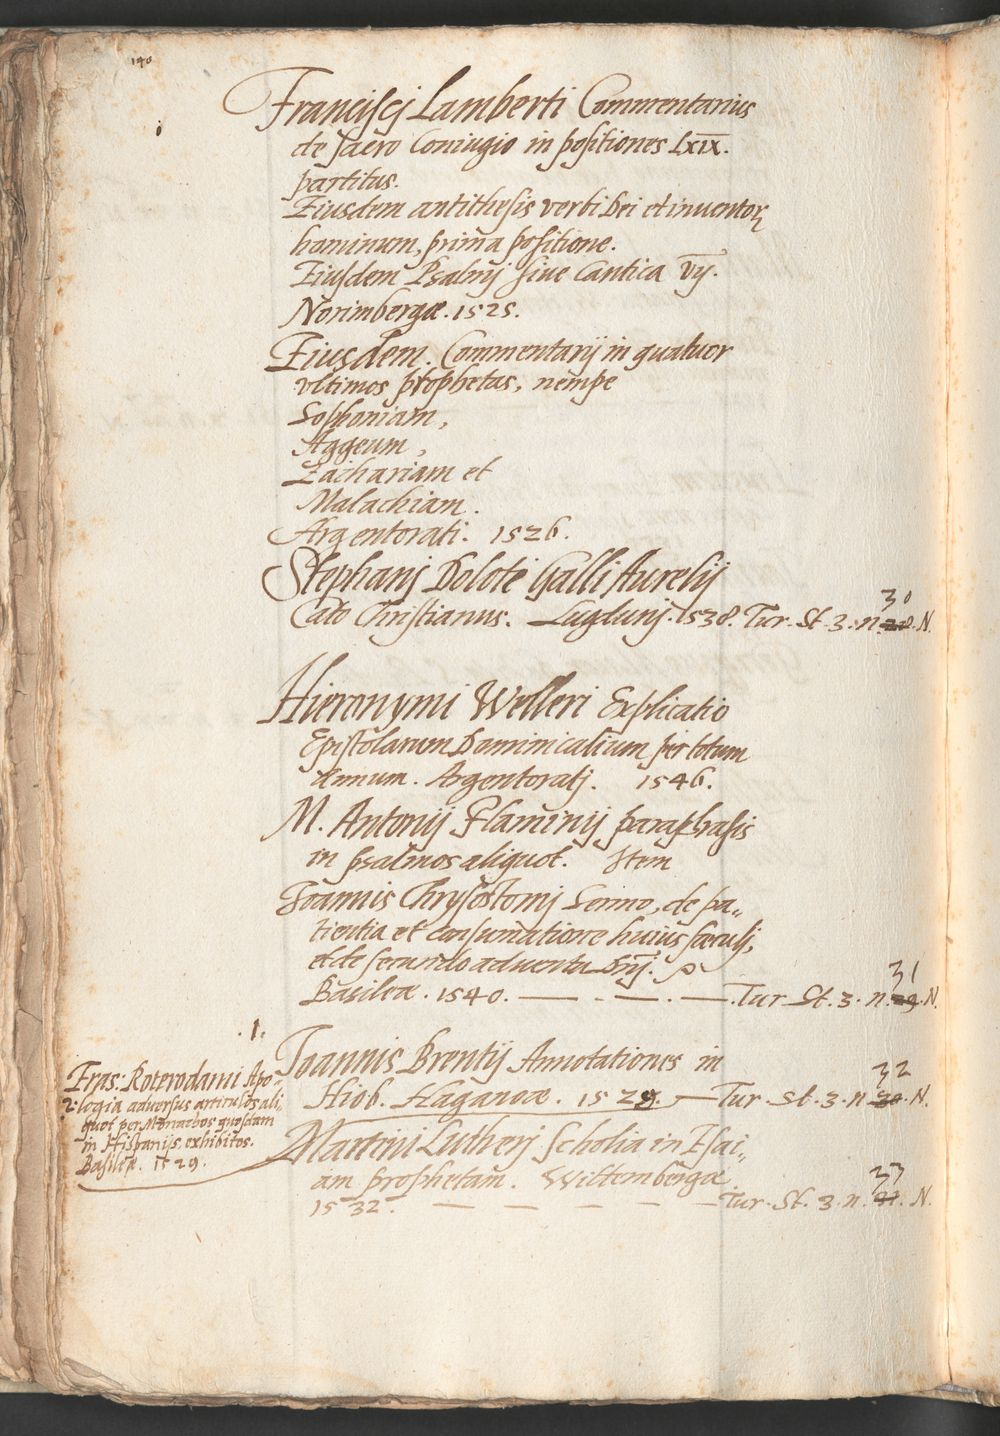 140
Francisci Lamberti Commentarius
de sacro Coniugio in positiones LXIX.
partitus.
Eiusdem antithesis verbi Dei et inventorꝝ
hominum, prima positione.
Eiusdem Psalmi sive Cantica vij.
Norimbergæ. 1525.
Eiusdem. Commentarij in quatuor
vltimos prophetas, nempe
Sophoniam,
Aggeum,
Zachariam et
Malachiam.
Argentorati. 1526.
Stephani Doleti Galli Aurelij
Cato Christianus. Lugduni. 1538. Tur. St. 3. n. 30. N.
Hieronymi Welleri Explicatio
Epistolarum Dominicalium per totum
annum. Argentorati. 1546.
M. Antonij Flaminij paraphrasis
in psalmos aliquot. Item
Joannis Chrysostomi Sermo, de pa„
tientia et consumatione huius sæculi,
et de secundo adventu Dn̄i.
Basileæ. 1540. — . — . — . Tur. St. 3. n. 31 29. N.
.1.
Joannis Brentij Annotationes in
Hiob. Haganoæ. 1529. — Tur. St. 3. n. 32 30. N.
Eras: Roterodami Apo„
2. logia adversus articulos ali„
quot per Monachos quosdam
in Hispanijs exhibitos.
Basileæ. 1529.
Martini Lutheri Scholia in Esai„
am prophetam. Wittembergæ
1532. — — — — — Tur. St. 3. n. 33 31. N.